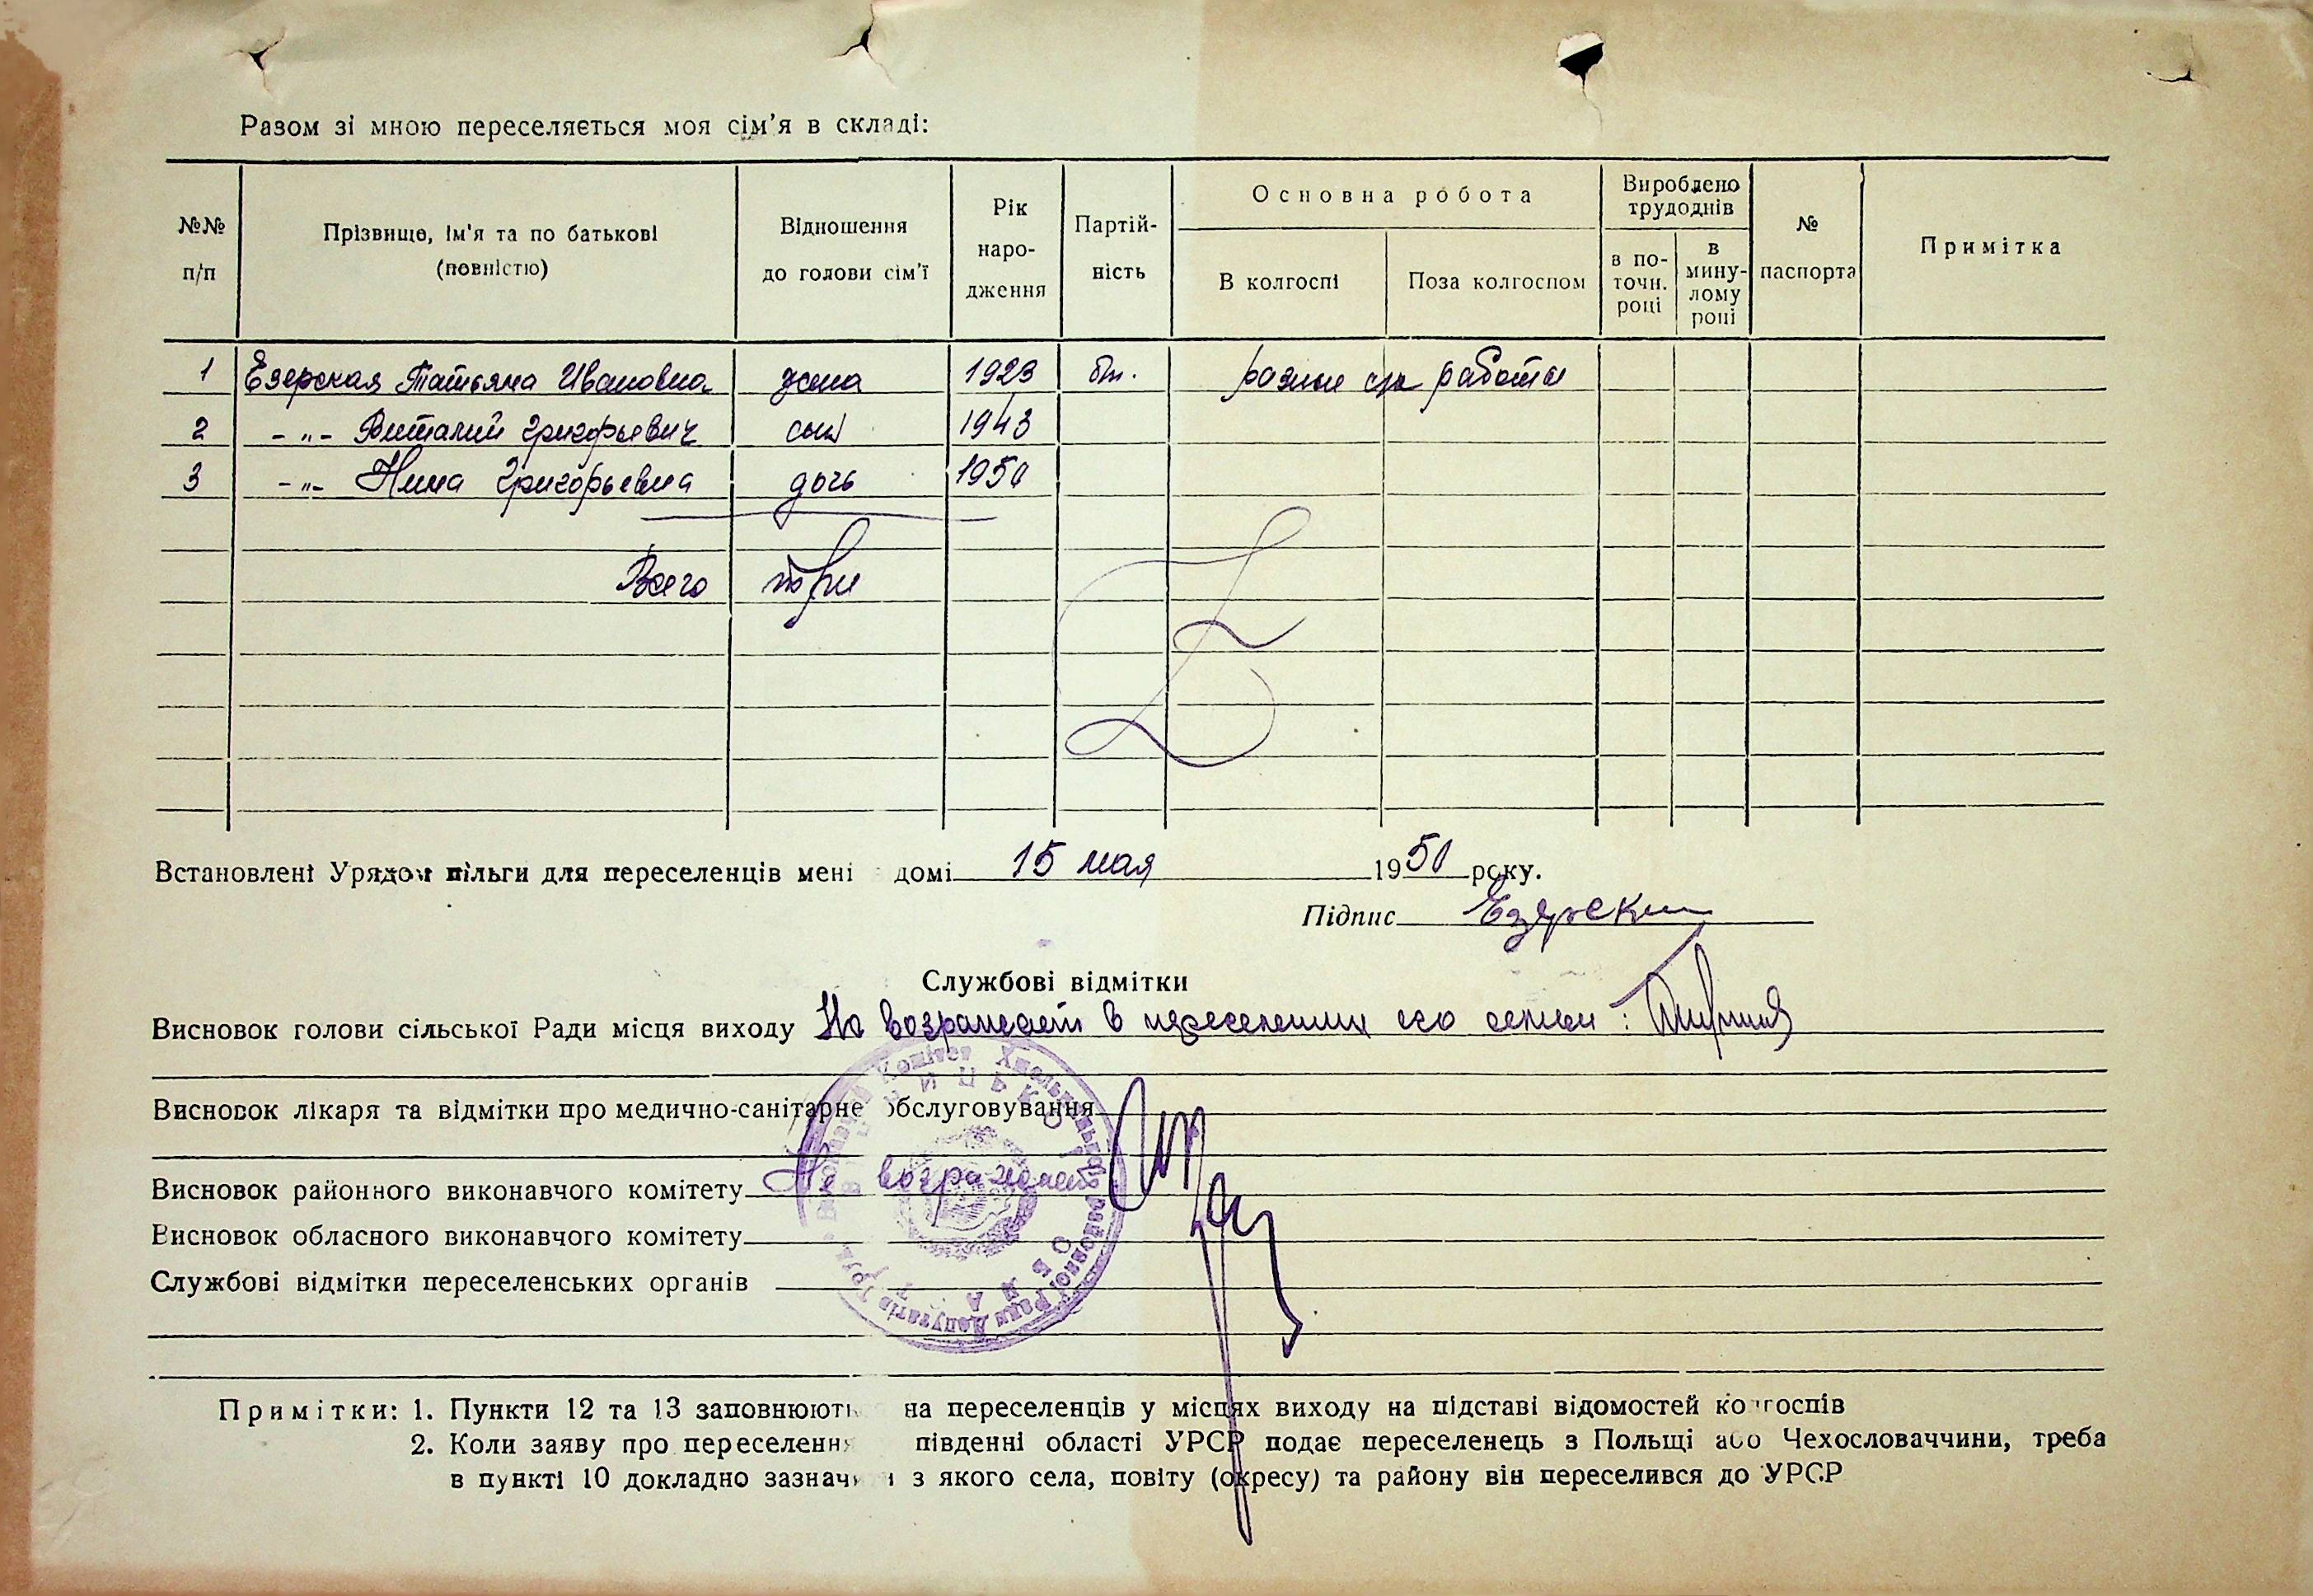 Разом зі мною переселяється моя сім'я в складі:
№№ п/п
Прізвище, ім'я та по батькові (повністю)
Відношення до голови сім'ї
Рік народження
Партійність
Основна робота
В колгоспі
Поза колгоспом
Вироблено трудоднів
в поточн. році
в минулому році
№ паспорта
Примітка
1 Езерская Татьяна Ивановна жена 1923 бп. разные с/х работы
2 -"- Виталий Григорьевич сын 1943
3 -"- Нина Григорьевна дочь 1950
Всего три
Встановлені Урядом пільги для переселенців мені домі 15 мая 1950 року.
Підпис Езерский
Службові відмітки
Висновок голови сільської Ради місця виходу Не возражает в переселении его семьи:
Висновок лікаря та відмітки про медично-санітарне обслуговування
Висновок районного виконавчого комітету Не возражает
Висновок обласного виконавчого комітету
Службові відмітки переселенських органів
Примітки: 1. Пункти 12 та 13 заповнюють на переселенців у місцях виходу на підставі відомостей колгоспів
2. Коли заяву про переселення південні області УРСР подає переселенець з Польщі або Чехословаччини, треба
в пункті 10 докладно зазначити з якого села, повіту (округу) та району він переселився до УРСР